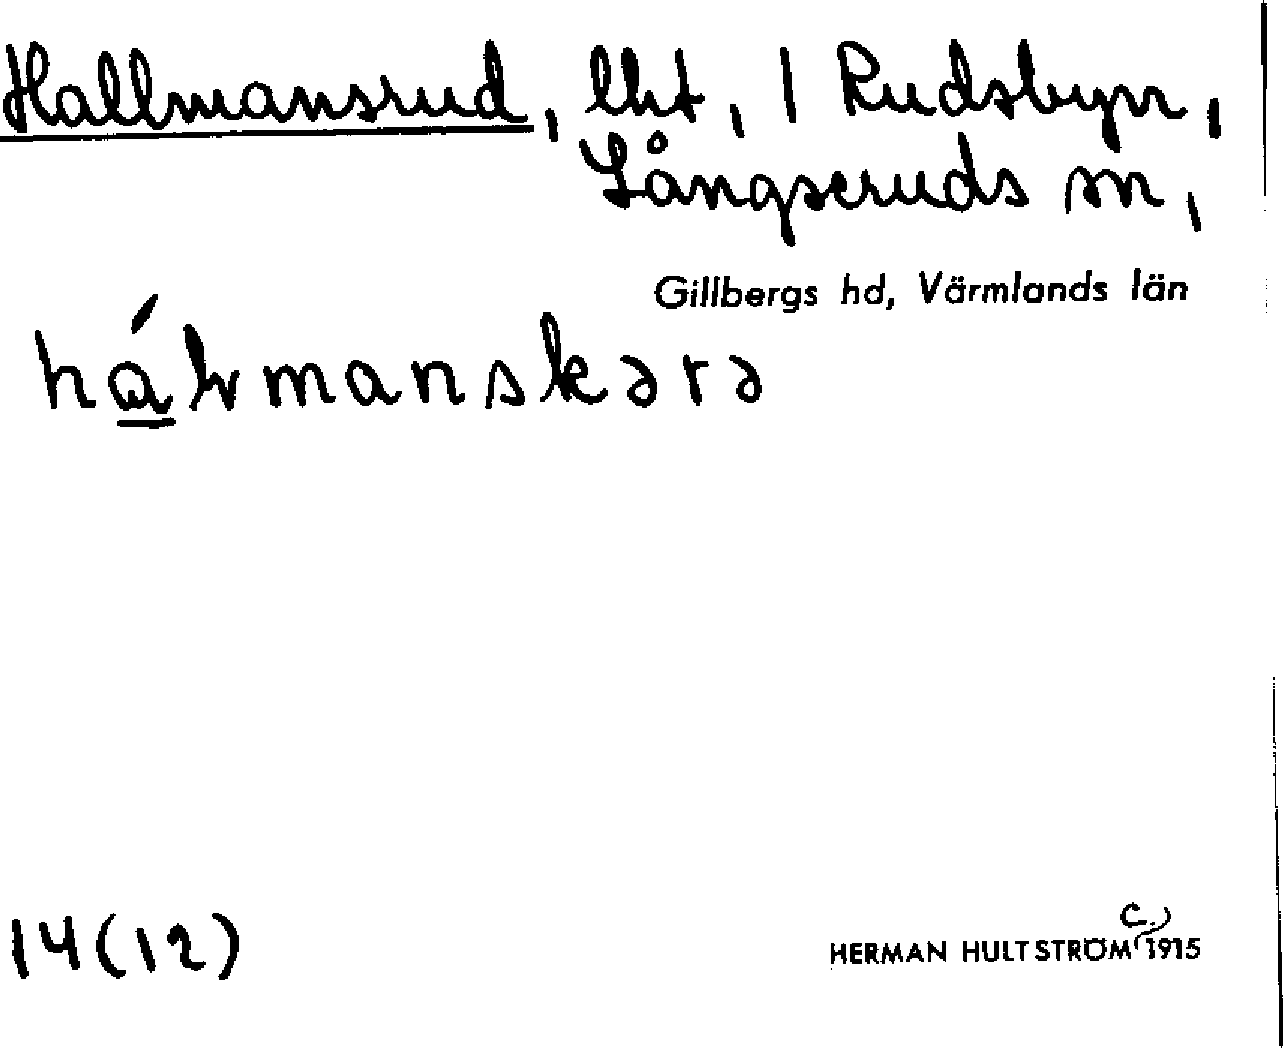 Hallmansrud, lht, 1 Rudsbyn,
Långseruds sn,
Gillbergs hd, Värmlands län
hálvmanskərə
14(12)
HERMAN HULTSTRÖM C. 1915